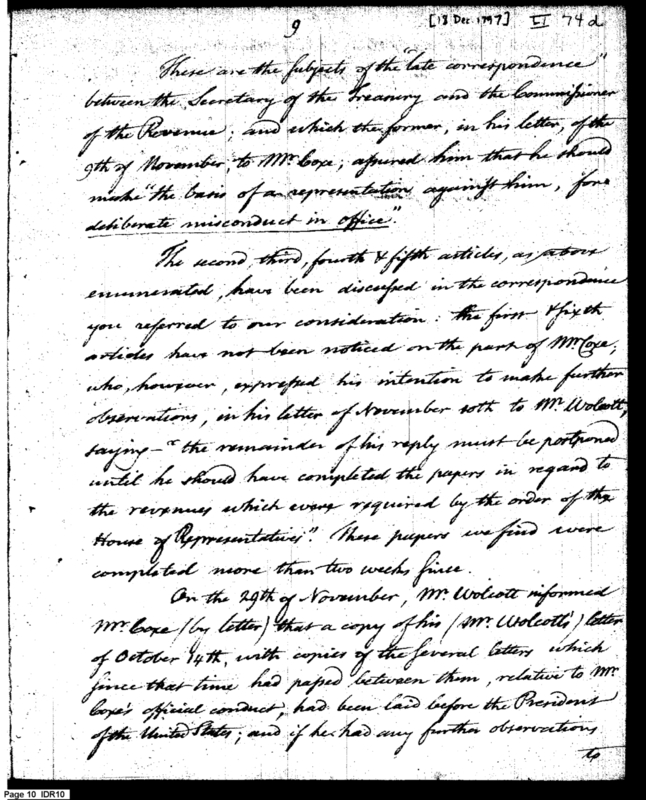 9
[18 Dec. 1797] LI 74d
These are the subjects of the "late correspondence"
between the Secretary of the Treasury and the Commissioner
of the Revenue; and which the former, in his letter, of the
9th of November, to Mr. Coxe, assured him that he should
make "the basis of a representation against him, for
deliberate misconduct in office".
The second, third, fourth & fifth articles, as above
enumerated, have been discussed in the correspondence
you referred to our consideration: the first & sixth
articles have not been noticed on the part of Mr. Coxe;
who, however, expressed his intention to make further
observations, in his letter of November 10th to Mr. Wolcott,
saying — "the remainder of his reply must be postponed
until he should have completed the papers in regard to
the revenues which were required by the order of the
House of Representatives". These papers we find were
completed more than two weeks since.
On the 29th of November, Mr. Wolcott informed
Mr. Coxe (by letter) that a copy of his (Mr. Wolcott's) letter
of October 14th, with copies of the several letters which
since that time had passed between them, relative to Mr.
Coxe's official conduct, had been laid before the President
of the United States; and if he had any further observations
to
Page 10 IDR10